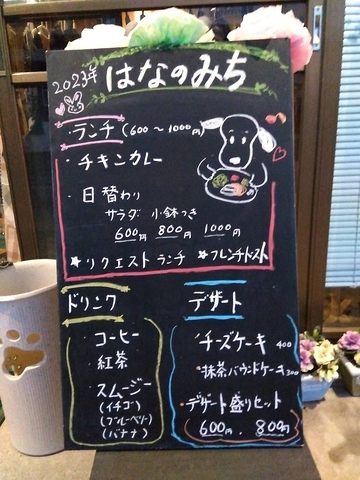 2023年
はなのみち
ランチ (600〜1000円)
・チキンカレー
・日替わり
サラダ 小鉢つき
600円 800円 1000円
★リクエストランチ ★フレンチトースト
ドリンク
コーヒー
紅茶
スムージー
(イチゴ)
(ブルーベリー)
(バナナ)
デザート
・チーズケーキ 400
・抹茶パウンドケーキ 300
・デザート盛りセット
600円・800円